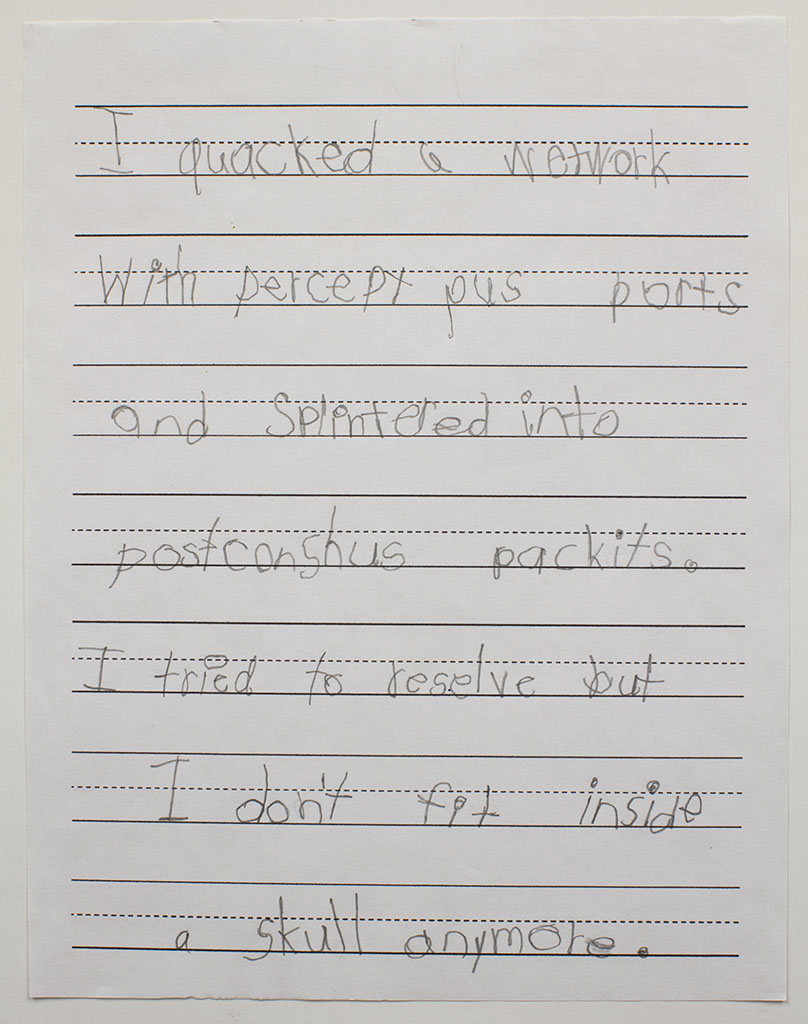 I quacked a wetwork
With percept pus ports
and Splintered into
postconshus packits.
I tried to reselve but
I don't fit inside
a skull anymore.